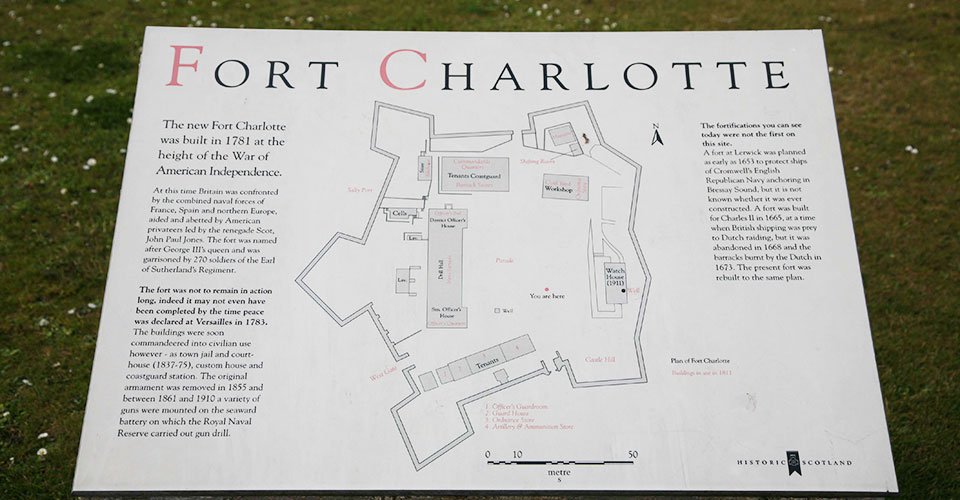 FORT CHARLOTTE
The new Fort Charlotte
was built in 1781 at the
height of the War of
American Independence.
At this time Britain was confronted
by the combined naval forces of
France, Spain and northern Europe,
aided and abetted by American
privateers led by the renegade Scot,
John Paul Jones. The fort was named
after George III's queen and was
garrisoned by 270 soldiers of the Earl
of Sutherland's Regiment.
The fort was not to remain in action
long, indeed it may not even have
been completed by the time peace
was declared at Versailles in 1783.
The buildings were soon
commandeered into civilian use
however - as town jail and court-
house (1837-75), custom house and
coastguard station. The original
armament was removed in 1855 and
between 1861 and 1910 a variety of
guns were mounted on the seaward
battery on which the Royal Naval
Reserve carried out gun drill.
N
Magazine
Shifting Room
Store
Commandants
Quarters
Tenants Coastguard
Barrack Stores
Workshop
Sally Port
Cells
District Officer's
House
Lav.
Drill Hall
Lav.
Parade
Watch
House
(1911)
Well
You are here
Well
Snr. Officer's
House
West Gate
Tenants
Castle Hill
1 Officer's Guardroom
2 Guard House
3 Ordnance Store
4 Artillery & Ammunition Store
0 10 50
metre
s
The fortifications you can see
today were not the first on
this site.
A fort at Lerwick was planned
as early as 1653 to protect ships
of Cromwell's English
Republican Navy anchoring in
Bressay Sound, but it is not
known whether it was ever
constructed. A fort was built
for Charles II in 1665, at a time
when British shipping was prey
to Dutch raiding, but it was
abandoned in 1668 and the
barracks burnt by the Dutch in
1673. The present fort was
rebuilt to the same plan.
Plan of Fort Charlotte
Buildings in use in 1811
HISTORIC SCOTLAND